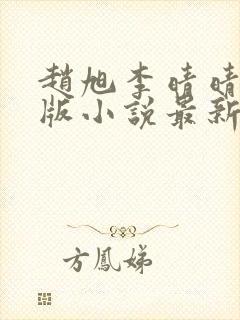 趙旭李晴晴
版小說最新
方鳳娣